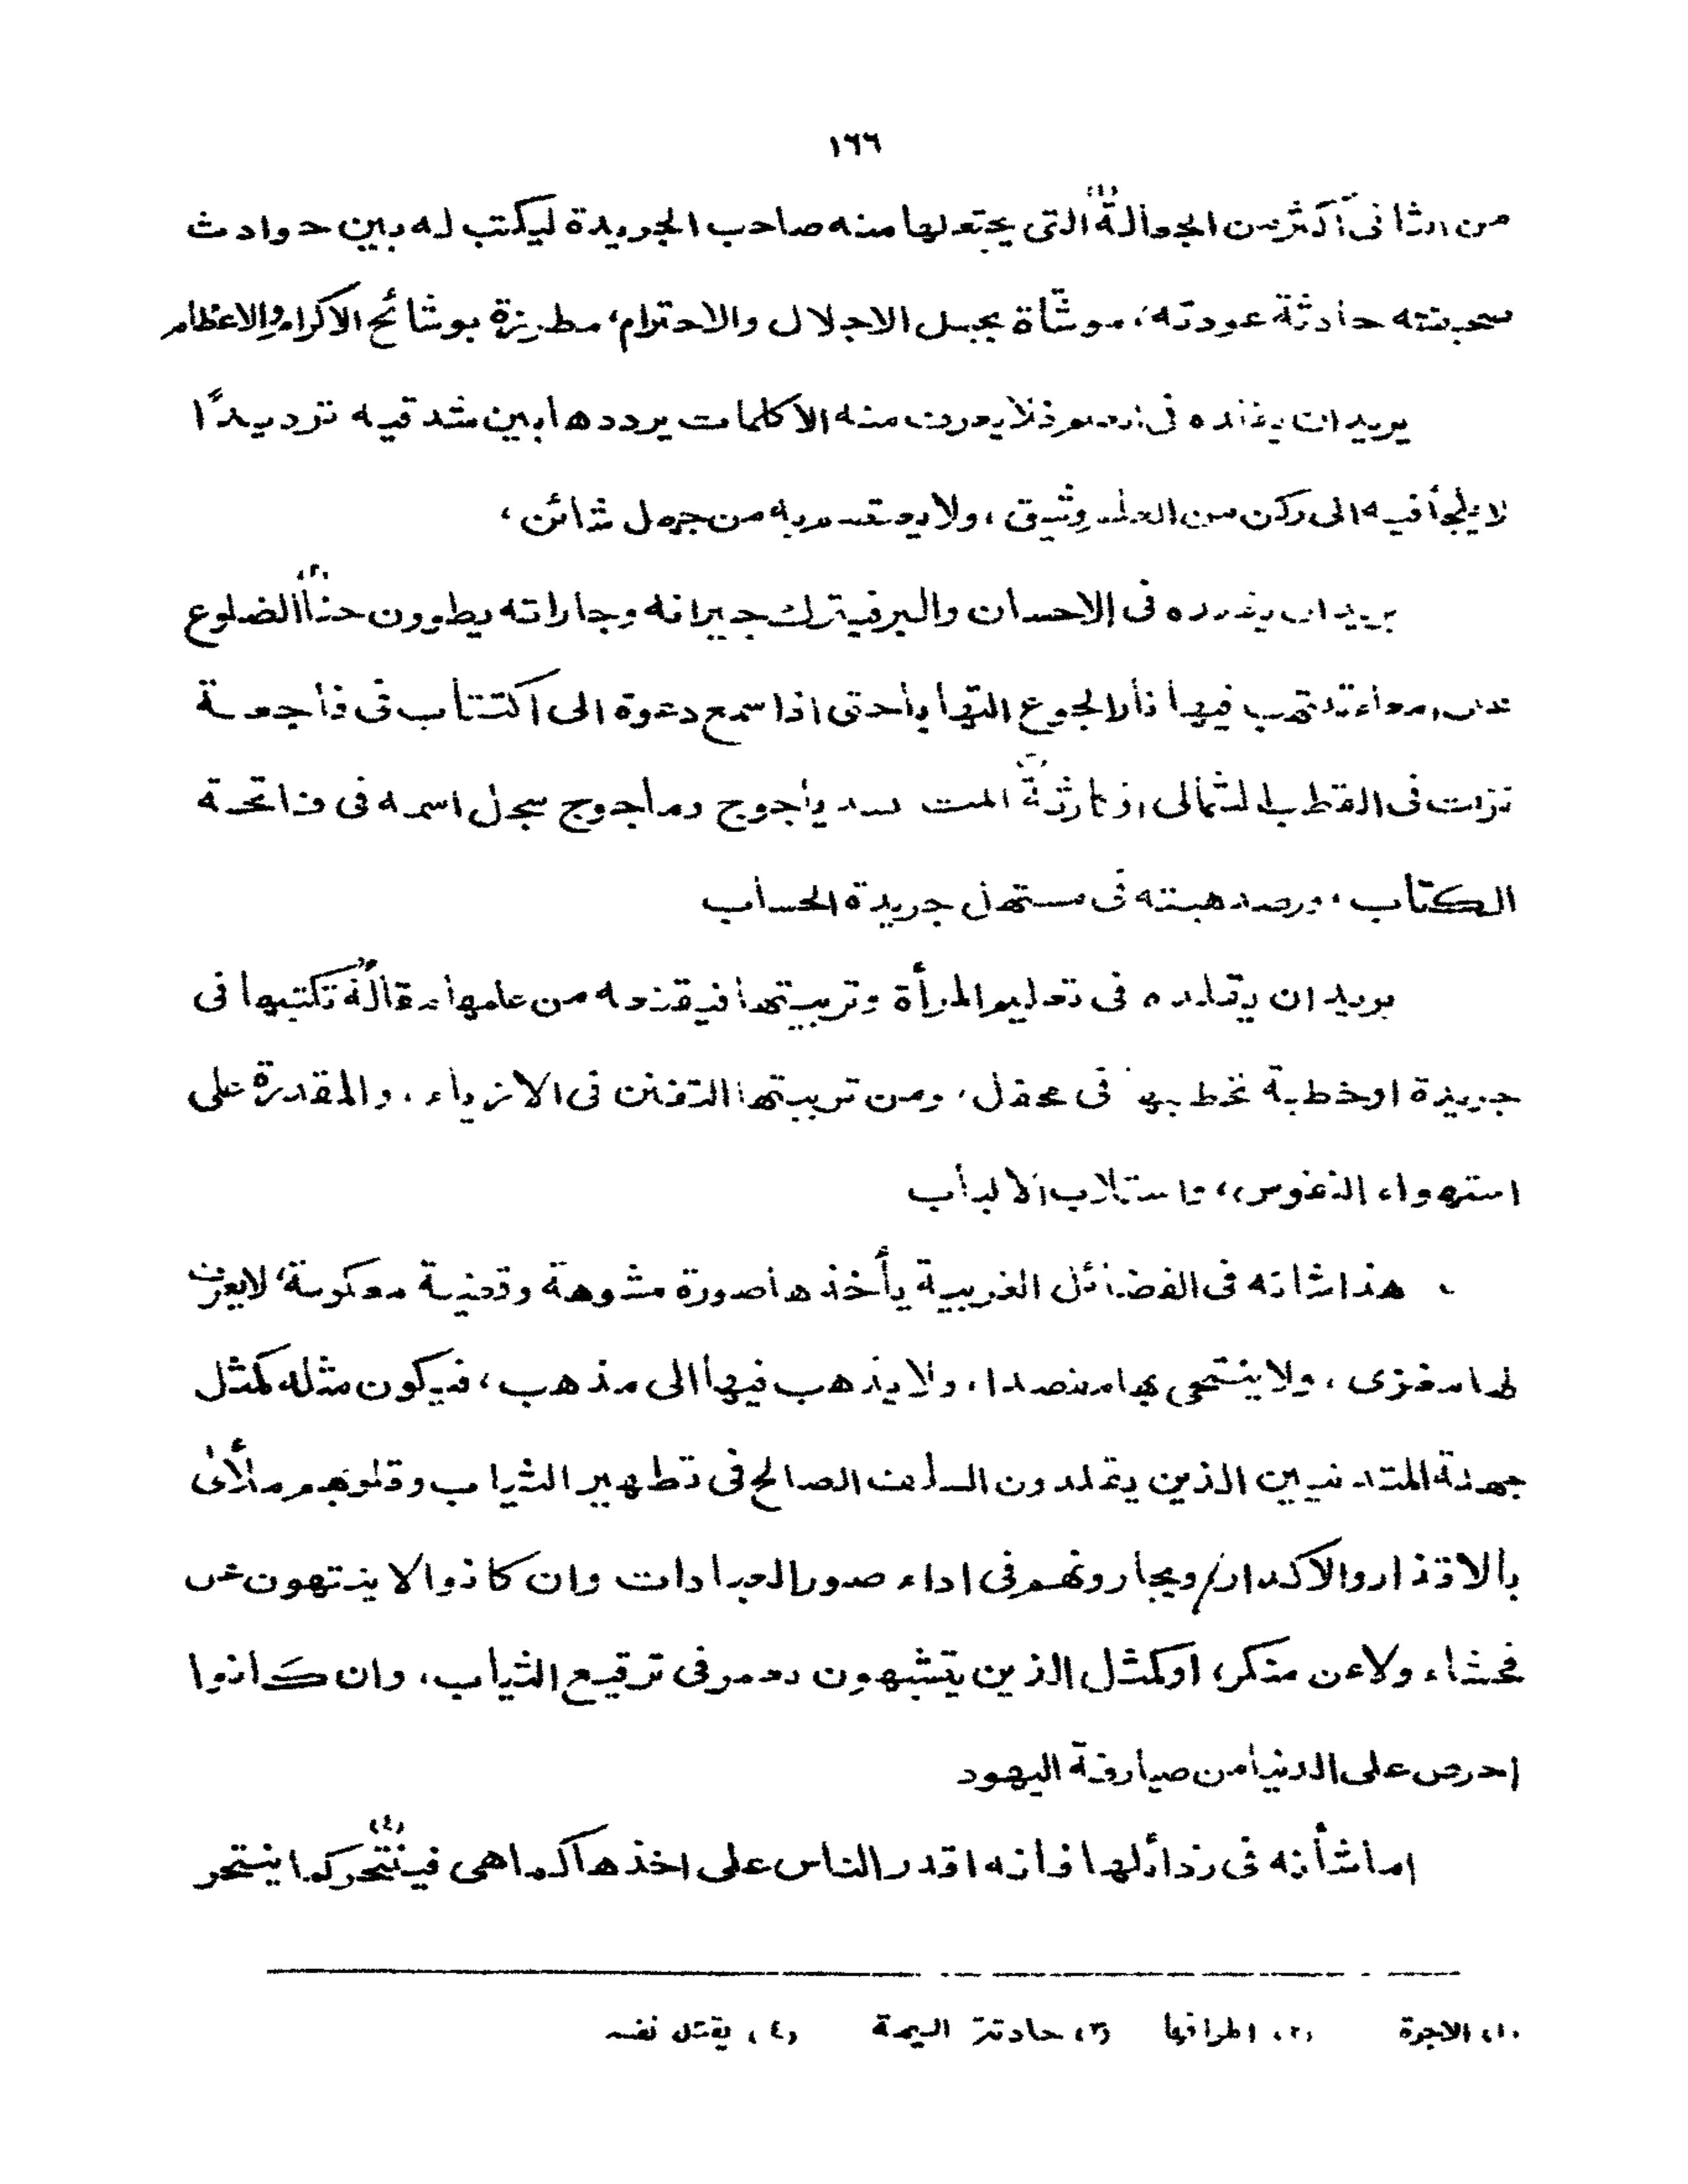 ١٦٦
من الثانى أكثر من الجعالة (١) التى يجتعلها منه صاحب الجريدة ليكتب له بين حوادث
صحيفته حادثة عودته، موشاة بجمل الاجلال والاحترام، مطرزة بوشائح الاكرام والاعظام
يريد ان يقلده فى العلم فلا يعرف منه الا كلمات يرددها بين شدقيه ترديدًا
لا يلجأ فيه الى ركن من العلم وثيق، ولا يعتصم به من جهل شائن،
يريد ان يقلده فى الاحسان والبر فيترك جيرانه وجاراته يطوون حنايا (٢) الضلوع
على امعاء تلتهب فيها نار الجوع التهابا حتى اذا سمع دعوة الى اكتتاب فى فاجعة
نزلت فى القطب الشمالى او كارثة (٣) المت بسد يأجوج ومأجوج سجل اسمه فى فاتحة
الكتاب، ورصد هبته فى مستهل جريدة الحساب
يريد ان يقلده فى تعليم المرأة وتربيتها فيقنعه من علمها مقالة تكتبها فى
جريدة او خطبة تخطبها فى محفل، ومن تربيتها التفنن فى الازياء، والمقدرة على
استهواء النفوس، واستلاب الالباب
هذا شانه فى الفضائل الغربية يأخذها صورة مشوهة وقضية معكوسة، لا يعرف
لها مغزى، ولا ينتحى بها مقصدا، ولا يذهب فيها الى مذهب، فيكون مثله كمثل
جهلة المتدينين الذين يقلدون السلف الصالح فى تطهير الثياب وقلوبهم ملأى
بالاقذار والاكدار، ويجارونهم فى اداء صور العبادات وان كانوا لا ينتهون عن
فحشاء ولا عن منكر، او كمثل الذين يتشبهون بعمر فى ترقيع الثياب، وان كانوا
احرص على الدنيا من صيارفة اليهود
اما شأنه فى رذائلها فانه اقدر الناس على اخذها كما هى فينتحر (٤) كما ينتحر
(١) الاجرة (٢) اطرافها (٣) حادثة اليمة (٤) يقتل نفسه